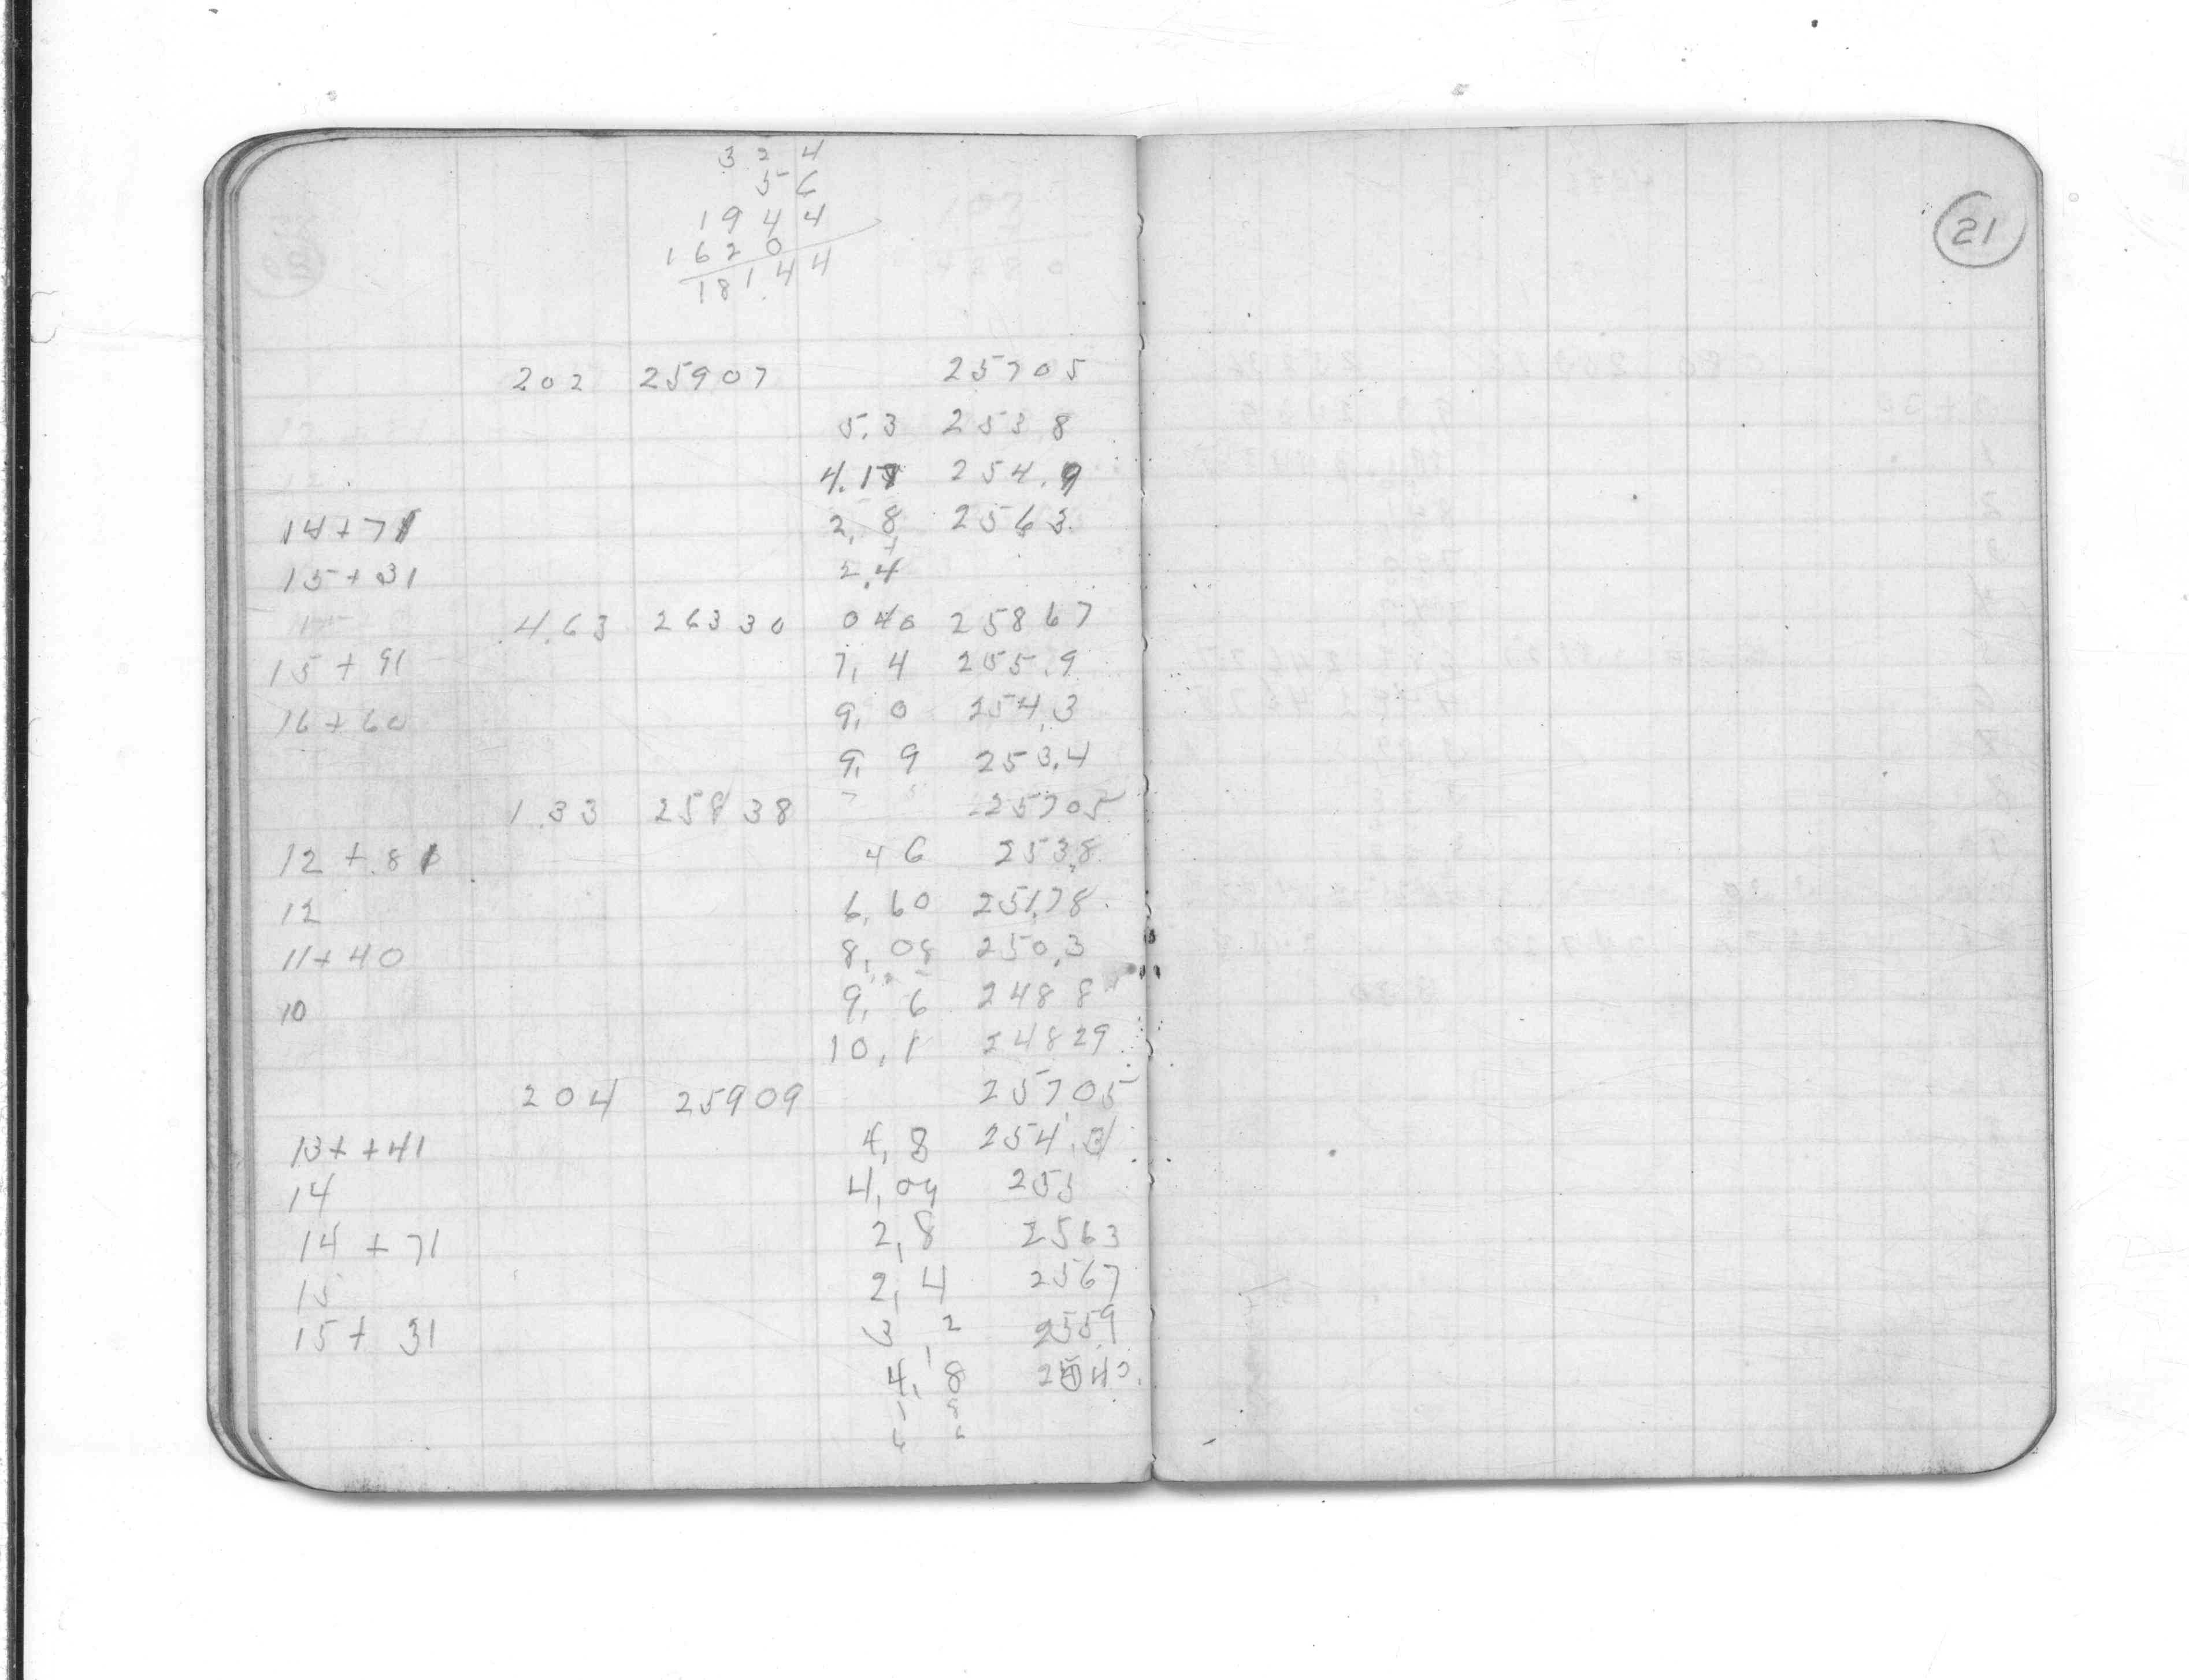 3 2 4
5 6
1 9 4 4
1 6 2 0
181.44
21
202 25907 25705
5.3 253 8
4.17 254.9
14+71 2,8 2563
15+31 2.4
4.63 26330 040 25867
15+91 7,4 255.9
16+60 9,0 254,3
9,9 253,4
1.33 25838 25705
12+81 46 253,8
12 6,60 251,78
11+40 8,08 250,3
10 9,6 248 8
10,1 24829
204 25909 25705
13++41 4,8 254,3
14 4,09 255
14+71 2,8 2563
15 2,4 2567
15+31 3,2 2559
4,8